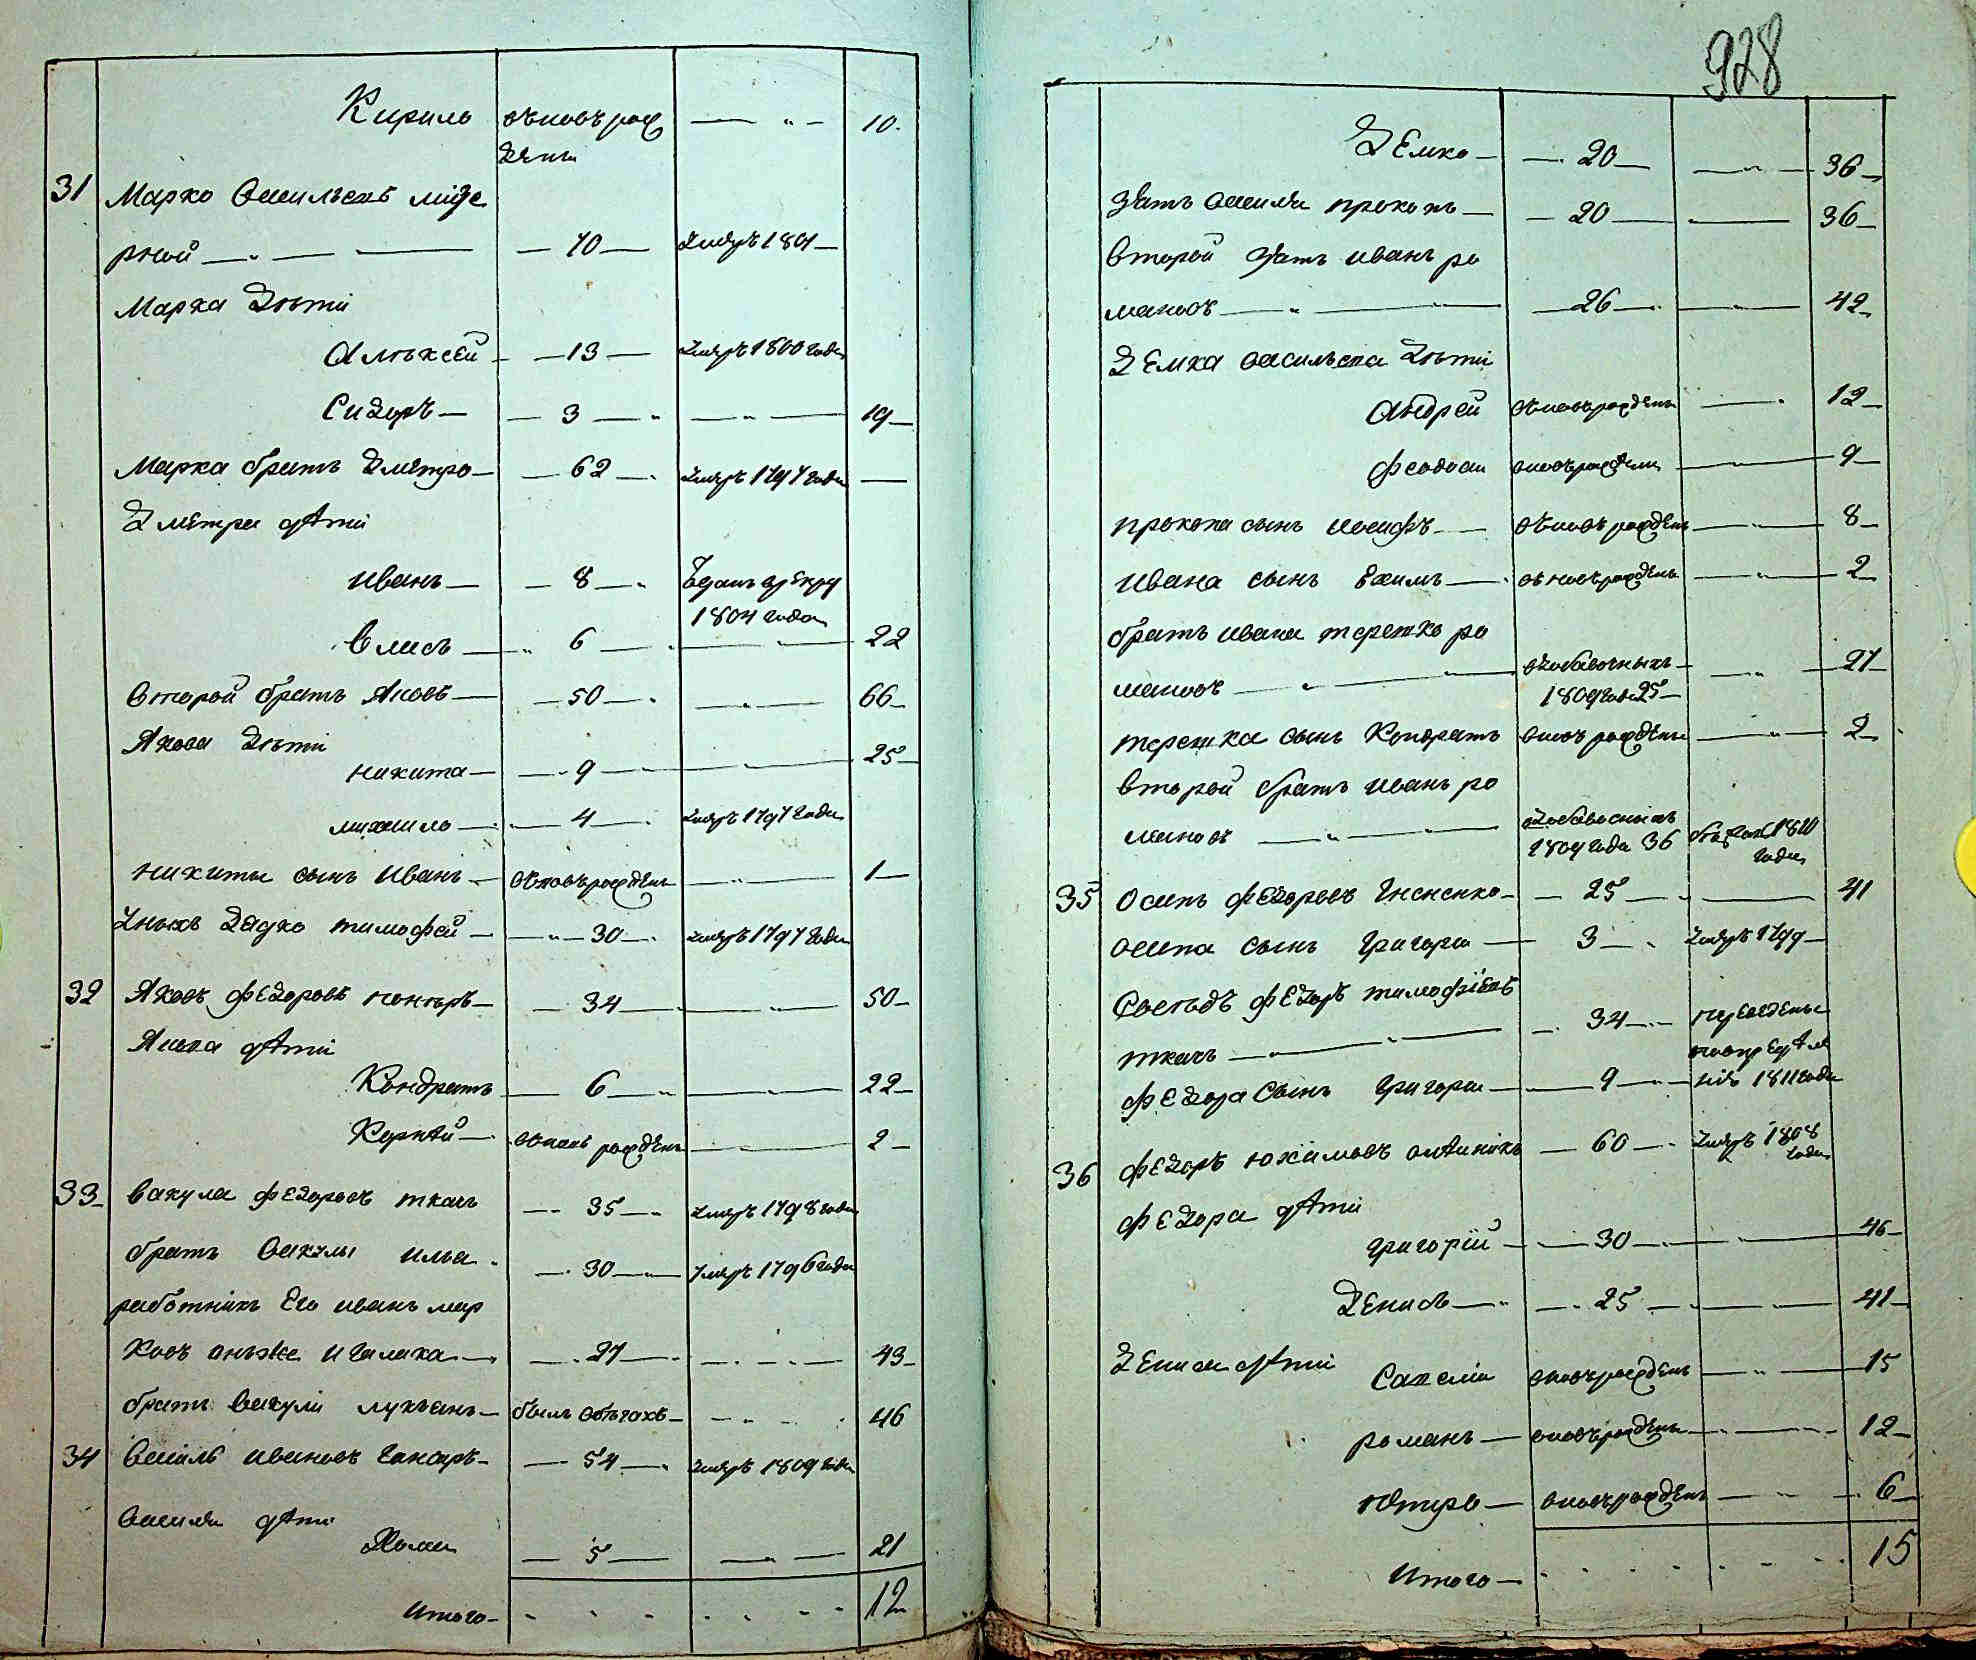 Кирило вновь рож — " — 10.
дени
31 Марко Васильевъ
рной — 70 — умеръ 1801 —
Марка дѣти
Алѣксей — 13 — умеръ 1800 года
Сидоръ — 3 — " — 19 —
Марка братъ Дмитро — 62 — умеръ 1797 года —
Дмитра дѣти
Иванъ — 8 — вданъ врекру
1804 года
Власъ — 6 — " — 22
Второй братъ Яковъ — 50 — " — 66 —
Якова дѣти
Никита — 9 — 25 —
Михаило — 4 — умеръ 1797 года
Никиты сынъ Иванъ — вновьрожденъ — " — 1 —
дядко Тимофей — " — 30 — умеръ 1797 года
32 Яковъ Федоровъ — 34 — " — 50 —
Якова дѣти
Кондратъ — 6 — " — 22 —
Корнѣй — вновь рожденъ — " — 2 —
33 Вакула Федоровъ ткачъ — 35 — умеръ 1798 года
братъ Вакулы Илья — 30 — умеръ 1796 года
работникъ Его Иванъ мар
ковъ онъже Игалика — 27 — 43 —
братъ Вакули Лукьянъ — былъ вбѣгахъ — 46
34 Василь Ивановъ Ганчаръ — 54 — умеръ 1809 года
Василя дѣти
Хома — 5 — " — 21
Итого — 12
928
Демко — 20 — " — 36 —
Зять Василя Прокопъ — 20 — 36 —
Второй Зять Иванъ Ро
мановъ — " — 26 — " — 42 —
Демка Васильева дѣти
Андрей вновьрожденъ — 12 —
Феодоси вновьрожденъ — 9 —
Прокопа сынъ Иосифъ — вновь рожденъ — " — 8 —
Ивана сынъ Екимъ — вновьрожденъ — " — 2 —
братъ Ивана Терешко Ро
мановъ — " — здобавочныхъ — " — 27 —
1809 года 25 —
Терешка сынъ Кондратъ вновь рожденъ — " — 2 —
Второй братъ Иванъ Ро
мановъ — " — здобавочныхъ
1809 года 36 1810
года
35 Осипъ Федоровъ Гненко — 25 — " — 41
Осипа сынъ Григори — 3 — умеръ 1799 —
Сосѣдъ Федоръ Тимофіевъ
ткачъ — " — 34 — переведены
Федора Сынъ Григори — 9 — 1811 года
36 Федоръ Юхимовъ олѣйникъ — 60 — умеръ 1808
года
Федора дѣти
Григорій — 30 — " — 46 —
Денисъ — 25 — " — 41 —
Дениса дѣти
Савелій вновьрожденъ — " — 15
Романъ — вновьрожденъ — 12 —
Пётръ — вновьрожденъ — " — 6 —
Итого — 15